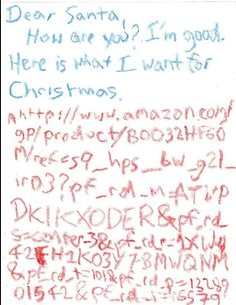 Dear Santa,
How are you? I'm good.
Here is what I want for
Christmas.
http://www.amazon.com/
gp/product/B0032HF60
M/ref=s9_hps_bw_g21_
ir03?pf_rd_m=ATVP
DKIKX0DER&pf_rd_
s=center-3&pf_rd_r=1XW
42 H2K03Y7BMWQNM
&pf_rd_t=101&pf_rd_p=